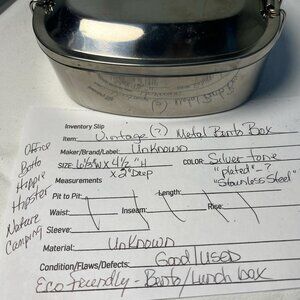 Inventory Slip
Item: Vintage (?) Metal Bento Box
Maker/Brand/Label: Unknown
SIZE: 6 1/2"W x 4 1/2"H
x 2" Deep
COLOR: Silver tone
"plated" - ?
"Stainless Steel"
Measurements
Pit to Pit:
Length:
Waist:
Inseam:
Rise:
Sleeve:
Material: Unknown
Condition/Flaws/Defects: Good/used
Eco Friendly - Bento/Lunch box
Office
Bento
Hippie
Hipster
Nature
Camping